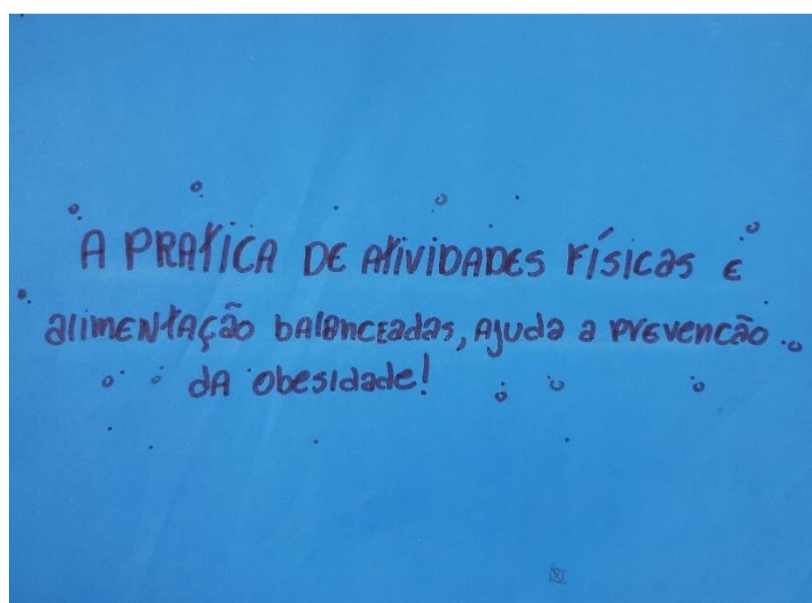 A PRATICA DE ATIVIDADES FÍSICAS E
alimENtAÇão bAlancEadas, AjUda a PrEvencão
dA obesidade!